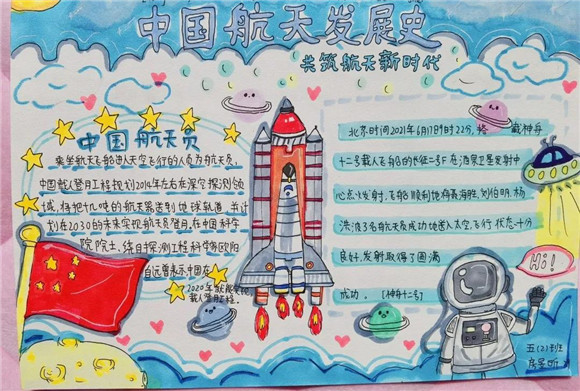 中国航天发展史
共筑航天新时代
中国航天员
乘坐航天飞船进入太空飞行的人员为航天员.
中国载人登月工程规划2014年左右在深空探测领
域,将把几吨的航天器送到地球轨道,并计
划在2030的未来实现航天员登月,在中国科学
院院士,绕月探测工程科学家欧阳
自远曾表示中国在
2020年就能实现
载人登月工程.
北京时间2021年6月17日9时22分,搭载神舟
十二号载人飞船的长征二号F在酒泉卫星发射中
心点火发射,飞船顺利地将聂海胜,刘伯明,杨
洪波3名航天员成功地送入太空,飞行状态十分
良好,发射取得了圆满
成功.(神舟十二号)
Hi!
五(2)班